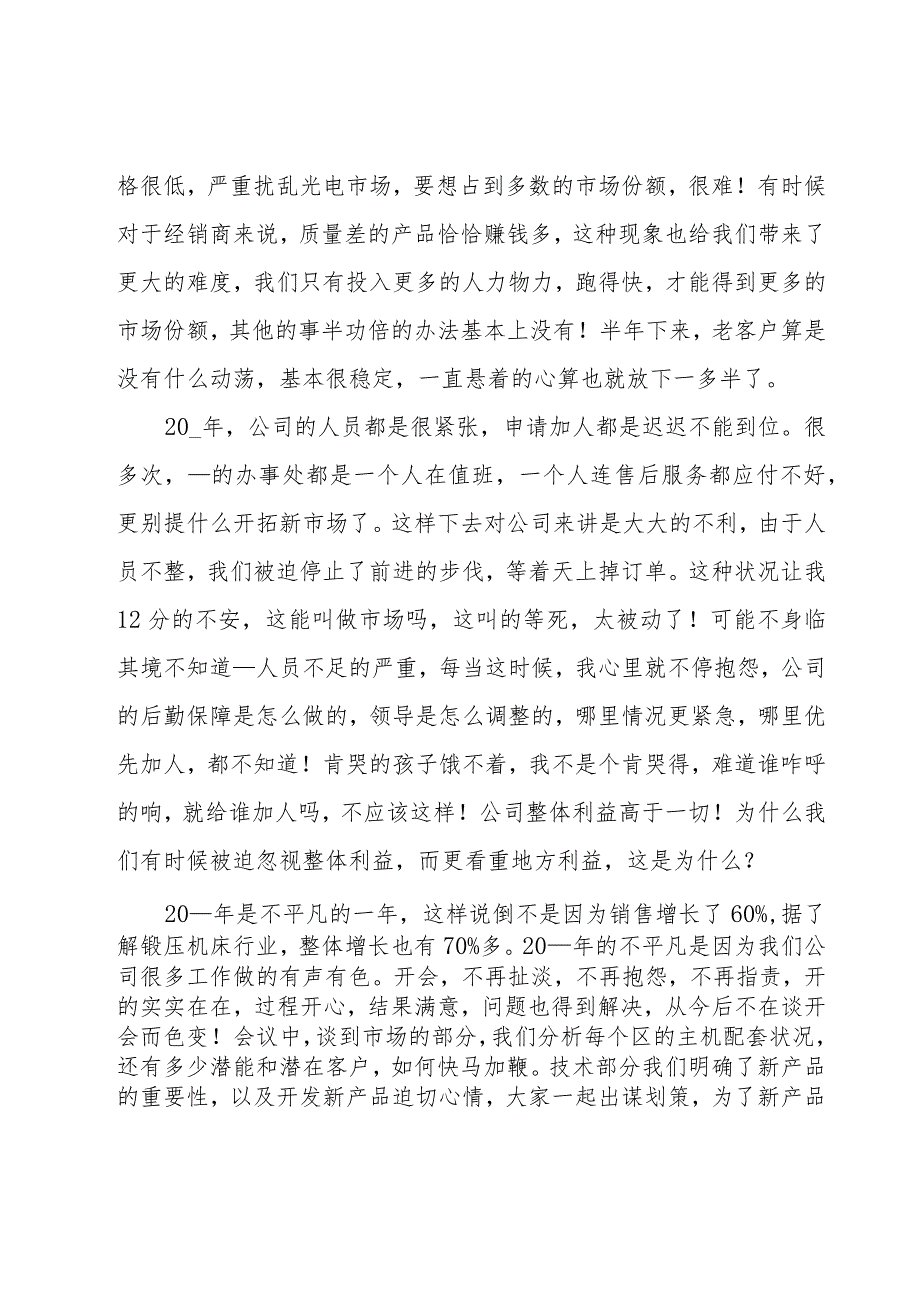 格很低，严重扰乱光电市场，要想占到多数的市场份额，很难！有时候
对于经销商来说，质量差的产品恰恰赚钱多，这种现象也给我们带来了
更大的难度，我们只有投入更多的人力物力，跑得快，才能得到更多的
市场份额，其他的事半功倍的办法基本上没有！半年下来，老客户算是
没有什么动荡，基本很稳定，一直悬着的心算也就放下一多半了。
20_年，公司的人员都是很紧张，申请加人都是迟迟不能到位。很
多次，—的办事处都是一个人在值班，一个人连售后服务都应付不好，
更别提什么开拓新市场了。这样下去对公司来讲是大大的不利，由于人
员不整，我们被迫停止了前进的步伐，等着天上掉订单。这种状况让我
12分的不安，这能叫做市场吗，这叫的等死，太被动了！可能不身临
其境不知道—人员不足的严重，每当这时候，我心里就不停抱怨，公司
的后勤保障是怎么做的，领导是怎么调整的，哪里情况更紧急，哪里优
先加人，都不知道！肯哭的孩子饿不着，我不是个肯哭得，难道谁咋呼
的响，就给谁加人吗，不应该这样！公司整体利益高于一切！为什么我
们有时候被迫忽视整体利益，而更看重地方利益，这是为什么？
20—年是不平凡的一年，这样说倒不是因为销售增长了60%,据了
解锻压机床行业，整体增长也有70%多。20—年的不平凡是因为我们公
司很多工作做的有声有色。开会，不再扯淡，不再抱怨，不再指责，开
的实实在在，过程开心，结果满意，问题也得到解决，从今后不在谈开
会而色变！会议中，谈到市场的部分，我们分析每个区的主机配套状况，
还有多少潜能和潜在客户，如何快马加鞭。技术部分我们明确了新产品
的重要性，以及开发新产品迫切心情，大家一起出谋划策，为了新产品